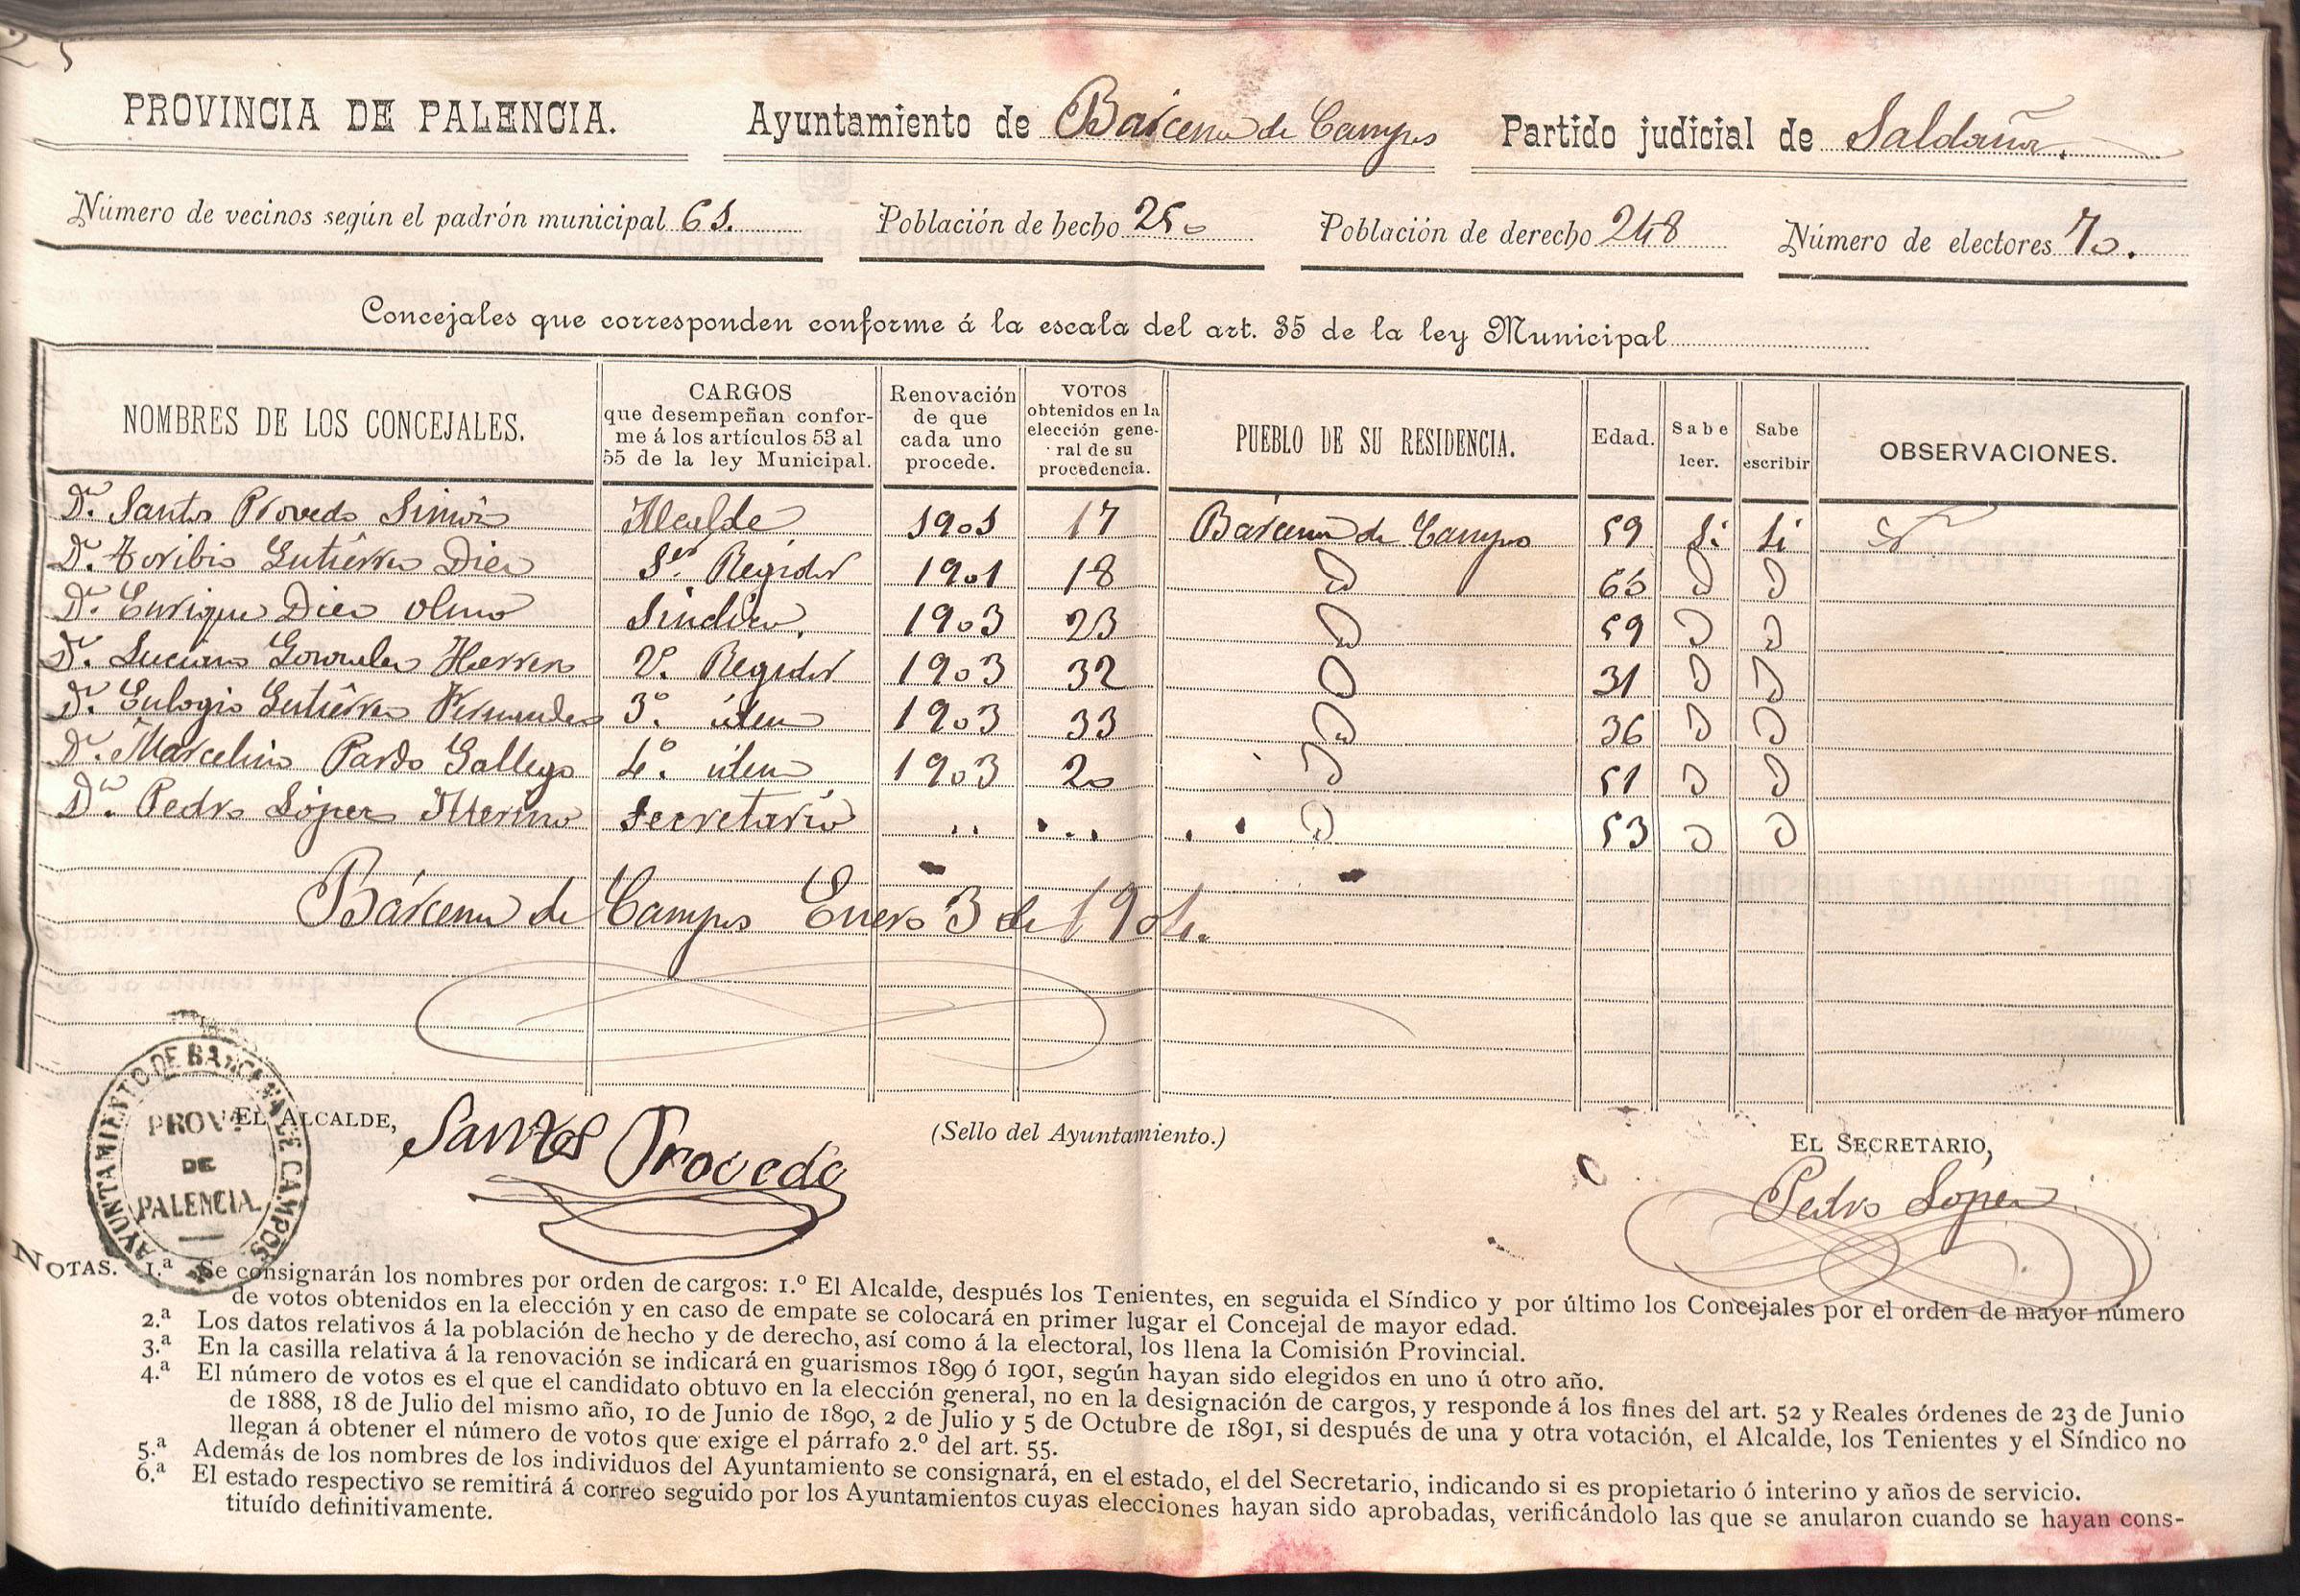 PROVINCIA DE PALENCIA. Ayuntamiento de Bárcena de Campos Partido judicial de Saldaña.
Número de vecinos según el padrón municipal 61. Población de hecho 250 Población de derecho 248 Número de electores 70.
Concejales que corresponden conforme á la escala del art. 35 de la ley Municipal
NOMBRES DE LOS CONCEJALES.
CARGOS
que desempeñan confor-
me á los artículos 53 al
55 de la ley Municipal.
Renovación
de que
cada uno
procede.
VOTOS
obtenidos en la
elección gene-
ral de su
procedencia.
PUEBLO DE SU RESIDENCIA.
Edad.
Sabe
leer.
Sabe
escribir
OBSERVACIONES.
Dn. Santos Provedo Simón Alcalde 1901 17 Bárcena de Campos 59 Si Si
Dn. Toribio Gutiérrez Diez 1er. Regidor 1901 18 D 65 D D
Dn. Enrique Diez Olmo Síndico. 1903 23 D 59 D D
Dn. Luciano Gonzalez Herrero 2º. Regidor 1903 32 D 31 D D
Dn. Eulogio Gutiérrez Fernandez 3º. idem 1903 33 D 36 D D
Dn. Marcelino Pardo Gallego 4º. idem 1903 20 D 51 D D
Dn. Pedro López Merino Secretario .. ... .. D 53 D D
Bárcena de Campos Enero 3 de 1904.
AYUNTAMIENTO DE BARCENA DE CAMPOS
PROVª
DE
PALENCIA
EL ALCALDE,
Santos Provedo
(Sello del Ayuntamiento.)
EL SECRETARIO,
Pedro López
NOTAS. 1.ª Se consignarán los nombres por orden de cargos: 1.º El Alcalde, después los Tenientes, en seguida el Síndico y por último los Concejales por el orden de mayor número
de votos obtenidos en la elección y en caso de empate se colocará en primer lugar el Concejal de mayor edad.
2.ª Los datos relativos á la población de hecho y de derecho, así como á la electoral, los llena la Comisión Provincial.
3.ª En la casilla relativa á la renovación se indicará en guarismos 1899 ó 1901, según hayan sido elegidos en uno ú otro año.
4.ª El número de votos es el que el candidato obtuvo en la elección general, no en la designación de cargos, y responde á los fines del art. 52 y Reales órdenes de 23 de Junio
de 1888, 18 de Julio del mismo año, 10 de Junio de 1890, 2 de Julio y 5 de Octubre de 1891, si después de una y otra votación, el Alcalde, los Tenientes y el Síndico no
llegan á obtener el número de votos que exige el párrafo 2.º del art. 55.
5.ª Además de los nombres de los individuos del Ayuntamiento se consignará, en el estado, el del Secretario, indicando si es propietario ó interino y años de servicio.
6.ª El estado respectivo se remitirá á correo seguido por los Ayuntamientos cuyas elecciones hayan sido aprobadas, verificándolo las que se anularon cuando se hayan cons-
tituído definitivamente.